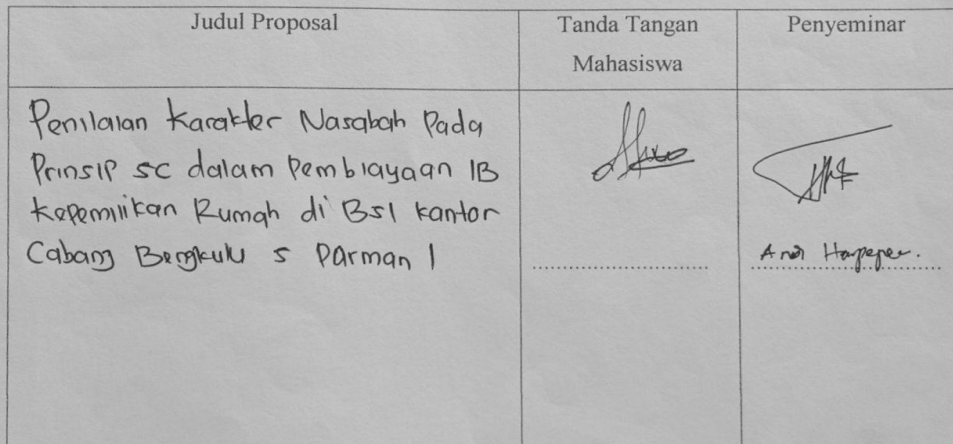 Judul Proposal
Tanda Tangan
Mahasiswa
Penyeminar
Penilaian Karakter Nasabah Pada
Prinsip 5C dalam Pembiayaan IB
Kepemilikan Rumah di BSI Kantor
Cabang Bengkulu S Parman 1
Andi